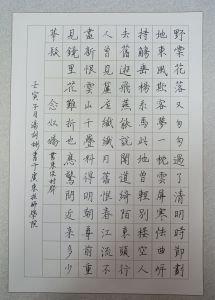 野棠花落又匆匆過了清明時節剗
地東風欺客夢一枕雲屏寒怯曲岸
持觴垂楊繫馬此地曾輕別樓空人
去舊遊飛燕能說聞道綺陌東頭行
人曾見簾底纖纖月舊恨春江流不
盡新恨雲山千疊料得明朝尊前重
見鏡里花難折也應驚問近來多少
華髮 念奴嬌 書東流村壁
壬寅子月湯書于廣東技師學院